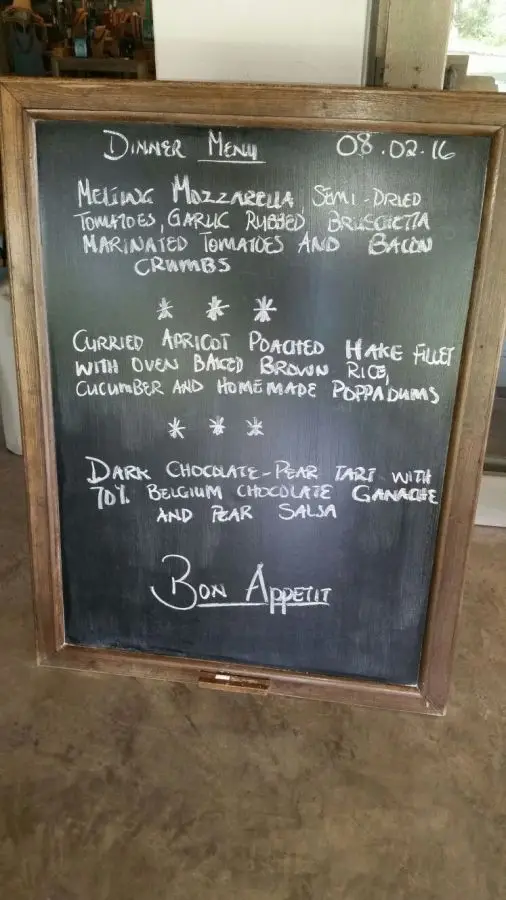 DINNER MENU 08.02.16
MELTING MOZZARELLA, SEMI-DRIED
TOMATOES, GARLIC RUBBED BRUSCHETTA
MARINATED TOMATOES AND BACON
CRUMBS
* * *
CURRIED APRICOT POACHED HAKE FILLET
WITH OVEN BAKED BROWN RICE,
CUCUMBER AND HOMEMADE POPPADUMS
* * *
DARK CHOCOLATE-PEAR TART WITH
70% BELGIUM CHOCOLATE GANACHE
AND PEAR SALSA
BON APPETIT